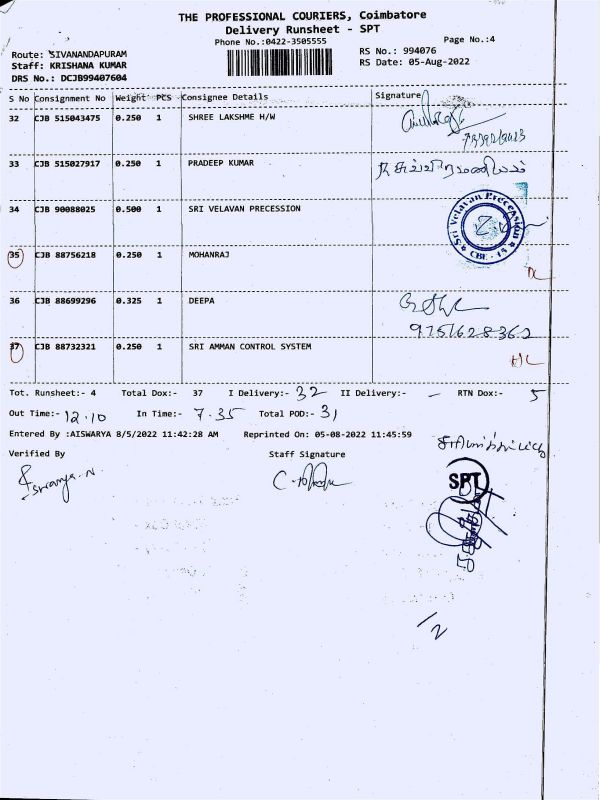 THE PROFESSIONAL COURIERS, Coimbatore
Delivery Runsheet - SPT
Phone No.:0422-3505555
Page No.:4
Route: SIVANANDAPURAM
RS No.: 994076
Staff: KRISHANA KUMAR
RS Date: 05-Aug-2022
DRS No.: DCJB99407604
S No Consignment No Weight PCS Consignee Details Signature
32 CJB 515043475 0.250 1 SHREE LAKSHME H/W
33 CJB 515027917 0.250 1 PRADEEP KUMAR
34 CJB 90088025 0.500 1 SRI VELAVAN PRECESSION
Sri Velavan Precession
CBE - 14
35 CJB 88756218 0.250 1 MOHANRAJ
DL
36 CJB 88699296 0.325 1 DEEPA
9751628362
37 CJB 88732321 0.250 1 SRI AMMAN CONTROL SYSTEM
HL
Tot. Runsheet:- 4 Total Dox:- 37 I Delivery:- 32 II Delivery:- - RTN Dox:- 5
Out Time:- 12.10 In Time:- 7.35 Total POD:- 31
Entered By :AISWARYA 8/5/2022 11:42:28 AM Reprinted On: 05-08-2022 11:45:59
Verified By Staff Signature
SPT
1/2